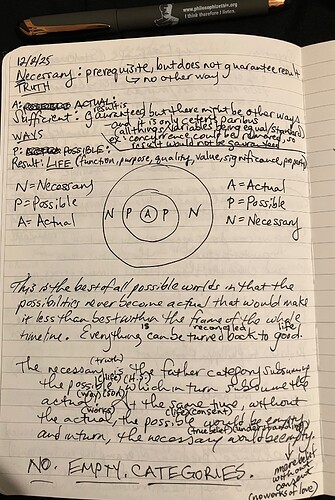 www.philosophizethis.org
I think therefore I listen.
12/8/25
Necessary: prerequisite, but does not guarantee result
TRUTH → no other way
A: ACTUAL: result is
Sufficient: guaranteed but there might be other ways
WAYS and it is only ceteris paribus
(all things/variables being equal/standard
P: POSSIBLE: ex. concurrence could be removed, so
result would not be guaranteed)
Result: LIFE (function, purpose, quality, value, significance, property)
N = Necessary
P = Possible
A = Actual
N P A P N
A = Actual
P = Possible
N = Necessary
This is the best of all possible worlds in that the
possibilities never become actual that would make
it less than best within the frame of the whole
timeline. Everything is reconciled life
can be turned back to good.
(truth)
The necessary is the father category subsuming
(life) (H.S.)
the possible, which in turn subsumes the
(way) (son)
actual; at the same time, without
(works) (life) (consent)
the actual, the possible would be empty
(true self)
and in turn, the necessary would be empty.
NO. EMPTY. CATEGORIES.
more best
without
consent
(no works of love)